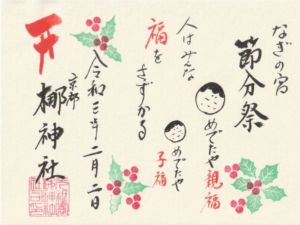 なぎの宮
節分祭
人はみんな
めでたや親福
福を
さずかる
めでたや
子福
令和三年二月二日
京都
梛神社